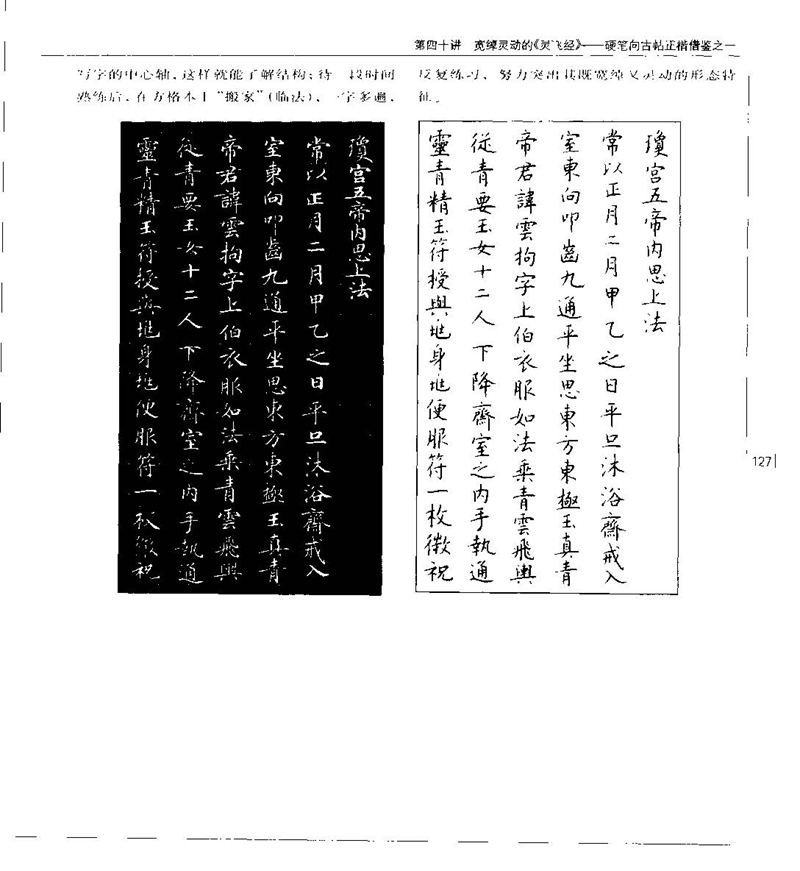 第四十讲　宽绰灵动的《灵飞经》——硬笔向古帖正楷借鉴之一
写字的中心轴，这样就能了解结构；待一段时间
熟练后，在方格本上“搬家”（临法），一字多遍，
反复练习，努力突出其既宽绰又灵动的形态特
征。
瓊宫五帝内思上法
常以正月二月甲乙之日平旦沐浴齋戒入
室東向叩齒九通平坐思東方東極玉真青
帝君諱雲拘字上伯衣服如法乘青雲飛輿
從青要玉女十二人下降齋室之内手執通
靈青精玉符授與地身地便服符一枚微祝
瓊宫五帝内思上法
常以正月二月甲乙之日平旦沐浴齋戒入
室東向叩齒九通平坐思東方東極玉真青
帝君諱雲拘字上伯衣服如法乘青雲飛輿
從青要玉女十二人下降齋室之内手執通
靈青精玉符授與地身地便服符一枚微祝
127